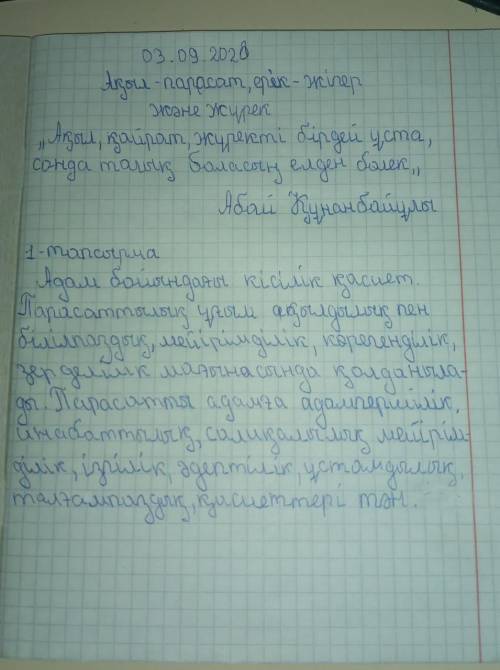 03.09.2020
Ақыл-парасат, ерік-жігер
және жүрек
„Ақыл, қайрат, жүректі бірдей ұста,
сонда талық боласың елден бөлек„
Абай Құнанбайұлы
1-тапсырма
Адам бойындағы кісілік қасиет.
Парасаттылық ұғым ақылдылық пен
білілпаздық, мейірімділік, көрегенділік,
зерделілік мағынасында қолданыла-
ды. Парасатты адамға адамгершілік,
инабаттылық, салиқалылық мейірім-
ділік, ізгілік, әдептілік, ұстамдылық,
талғампаздық, қасиеттері тән.